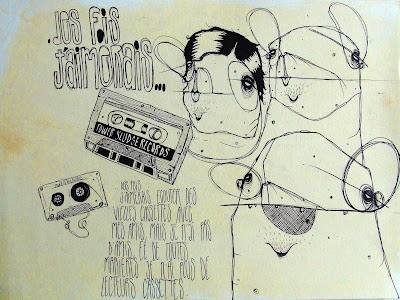 .. Jos fis
j'aimorais...
TOWER SLUDGE RECORDS
.. Jos fois
J'AIMERAIS ÉCOUTER DES
VIEILLES CASSETTES AVEC
MES AMIS MAIS JE N'AI PAS
D'AMIS. ET DE TOUTES
MANIERES JE N'AI POS DE
LECTEURS CASSETTES